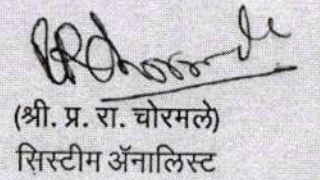 (श्री. प्र. रा. चोरमले)
सिस्टीम ॲनालिस्ट